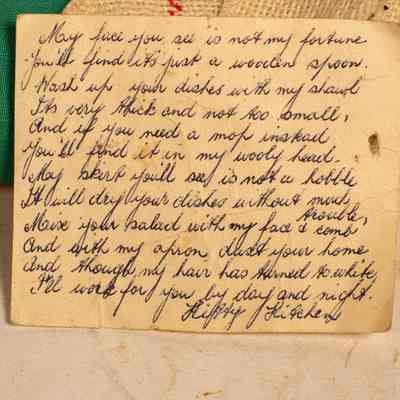 My face you see is not my fortune
You'll find it's just a wooden spoon.
Wash up your dishes with my shawl
Its very thick and not too small,
And if you need a mop instead
You'll find it in my wooly head.
My skirt you'll see is not a hobble
It will dry your dishes without much
trouble,
Mix your salad with my face & comb
And with my apron, dust your home
And though, my hair has turned to white
I'll work for you by day and night.
Kitchen